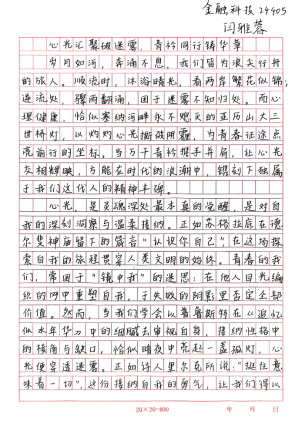 金融科技24405
闫雅蓉
心光汇聚破迷雾，青衿同行铸华章
岁月如河，奔涌不息，我们皆为浪尖行舟
的旅人。顺流时，沐浴晴光，看两岸繁花似锦；
逆流处，骤雨翻涌，困于迷雾不知归处。而心
理健康，恰似寒纳河畔永不熄灭的亚历山大三
世桥灯，以灼灼心光撕破阴霾，为青春征途点
亮前行的坐标。当万千青衿携手并肩，让心光
交相辉映，方能在时代的浪潮中，镌刻下独属
于我们这代人的精神丰碑。
心光，是灵魂深处最本真的觉醒，是对自
我的深刻洞察与温柔接纳。正如苏格拉底在德
尔斐神庙留下的箴言“认识你自己”，在这场探
索自我的旅程贯穿人类文明的始终。青春的我
们，常困于“镜中我”的迷思：在他人目光编
织的网中重塑自我，于失败的阴影里否定全部
价值。然而，当我们学会以普鲁斯特在《追忆
似水年华》中的细腻去审视自身，接纳性格中
的棱角与缺口，恰似暗夜中亮起一盏孤灯，心
光便穿透迷雾。正如诗人里尔克所说：“挺住意
味着一切”，这份接纳自我的勇气，让我们得以
20×20=400
年 月 日